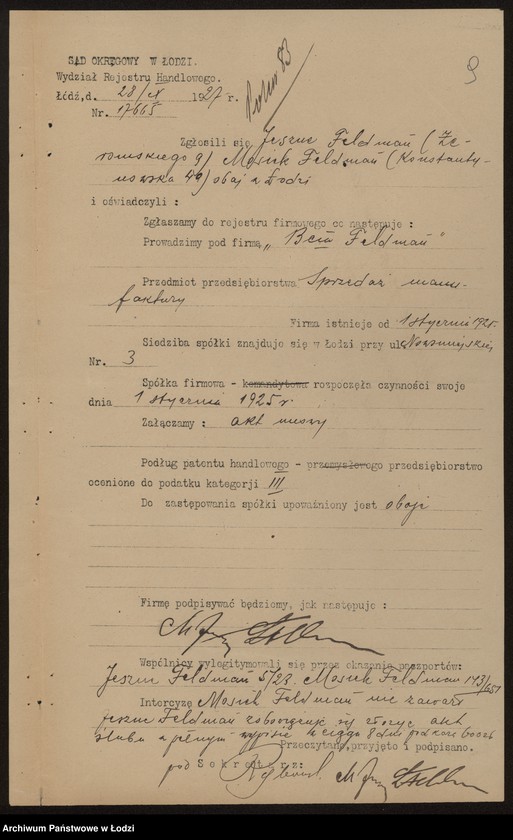 SĄD OKRĘGOWY W ŁODZI.
Wydział Rejestru Handlowego.
Łódź,d. 28/IX 1927 r.
Nr. 17665
9
Zgłosili się Jeszue Feldman (Że-
romskiego 9) Mosiek Feldman (Konstanty-
nowska 49) obaj z Łodzi
i oświadczyli :
Zgłaszamy do rejestru firmowego co następuje :
Prowadzimy pod firmą „Bcia Feldman"
Przedmiot przedsiębiorstwa Sprzedaż manu-
faktury
Firma istnieje od 1 stycznia 1925.
Siedziba spółki znajduje się w Łodzi przy ul.
Nr. 3
Spółka firmowa - komandytowa rozpoczęła czynności swoje
dnia 1 stycznia 1925 r.
Załączamy : akt
Podług patentu handlowego - przemysłowego przedsiębiorstwo
ocenione do podatku kategorji III
Do zastępowania spółki upoważniony jest obaj
Firmę podpisywać będziemy, jak następuje :
Wspólnicy wylegitymowali się przez okazanie paszportów:
Jeszue Feldman 5/23. Mosiek Feldman 173/651
Intercyzę Mosiek Feldman nie zawarł
Jeszue Feldman zobowiązuje się złożyć akt
ślubu w pełnym wypisie w ciągu 8 dni pod
Przeczytano,przyjęto i podpisano.
pod Sekretarz:
Archiwum Państwowe w Łodzi